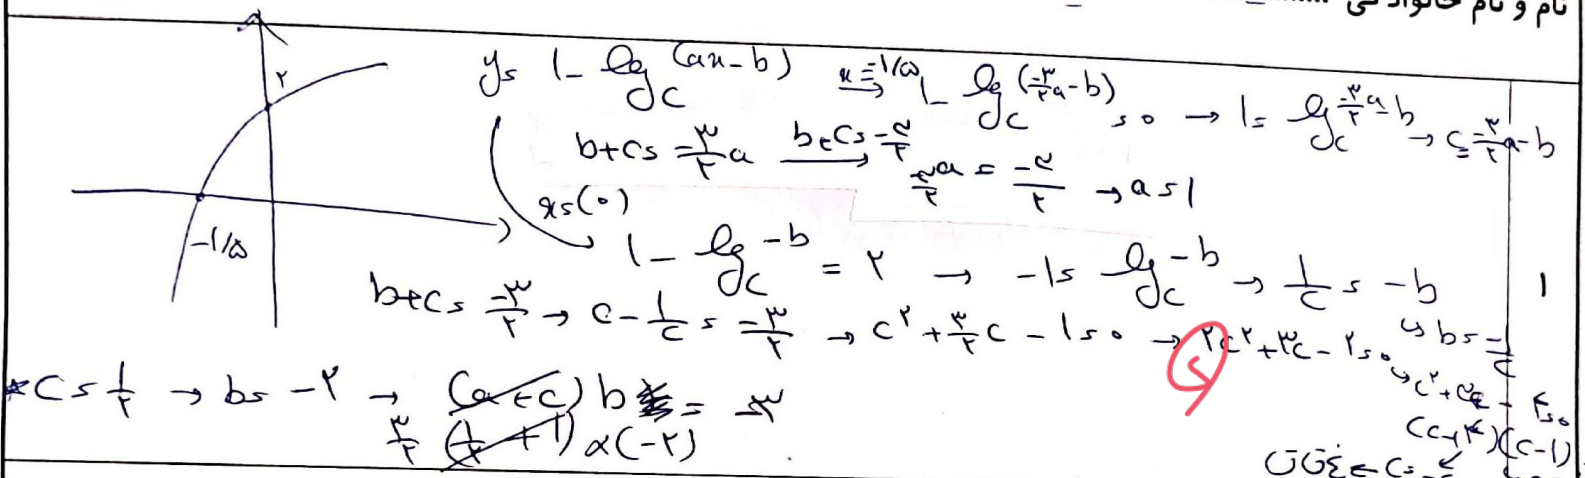 نام و نام خانوادگی
۲
-۱/۵
y = 1 - log_c (ax - b) x = -۱/۵ → 1 - log_c (-۳/۲ a - b) = 0 → 1 = log_c -۳/۲ a - b → c = -۳/۲ a - b
b + c = -۳/۲ a b + c = -۳/۲ → -۳/۲ a = -۳/۲ → a = 1
x = (0)
1 - log_c -b = ۲ → -1 = log_c -b → 1/c = -b
↳ b = -1/c
b + c = -۳/۲ → c - 1/c = -۳/۲ → c^۲ + ۳/۲ c - 1 = 0 → ۲c^۲ + ۳c - ۲ = 0
↳ c^۲ + ۳c - ۴ = 0
(c + ۴)(c - 1)
* c = 1/۲ → b = -۲ → (a + c) b = -۳
۳/۲ (1/۲ + 1) × (-۲)
۱